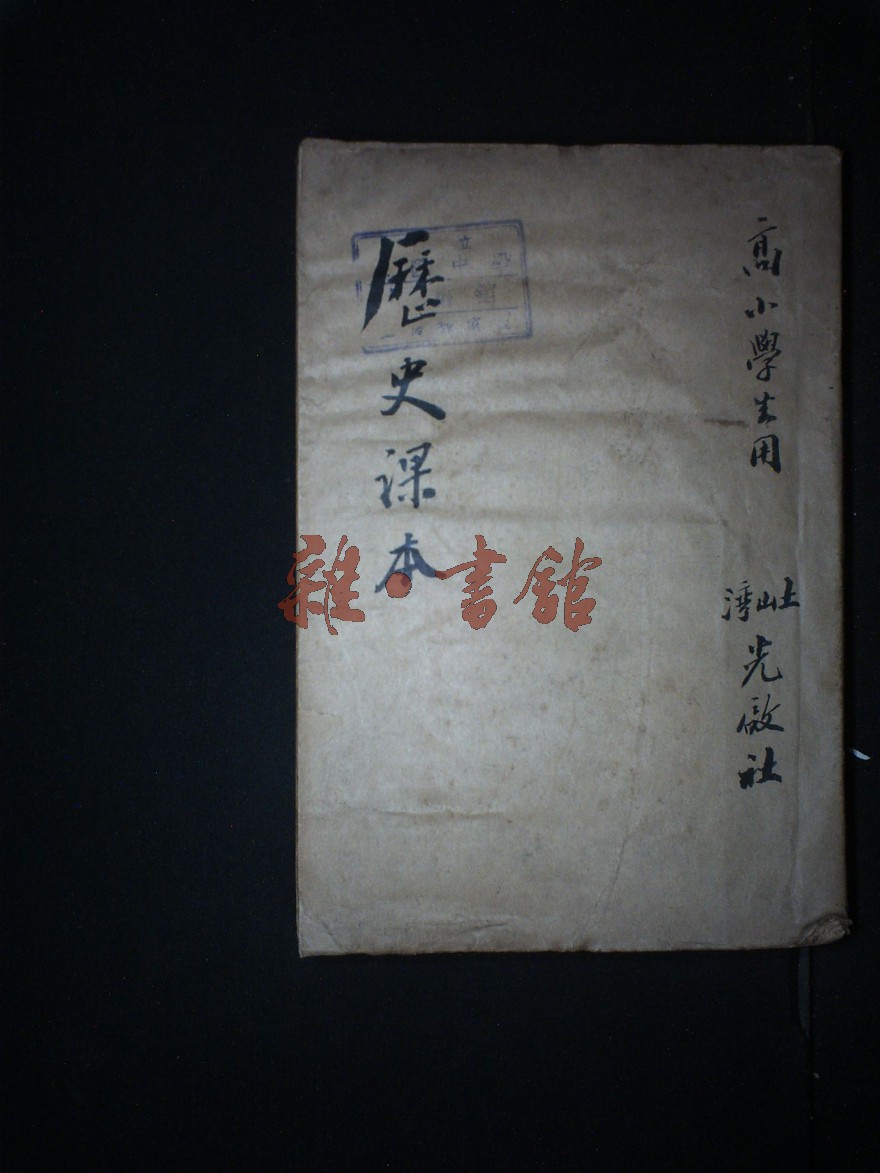 高小學生用
土山灣
光啟社
歷史課本
雜·書館